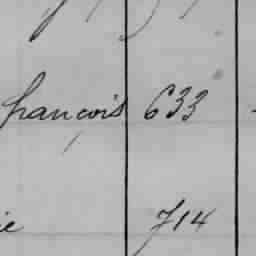 françois 633
ie 714